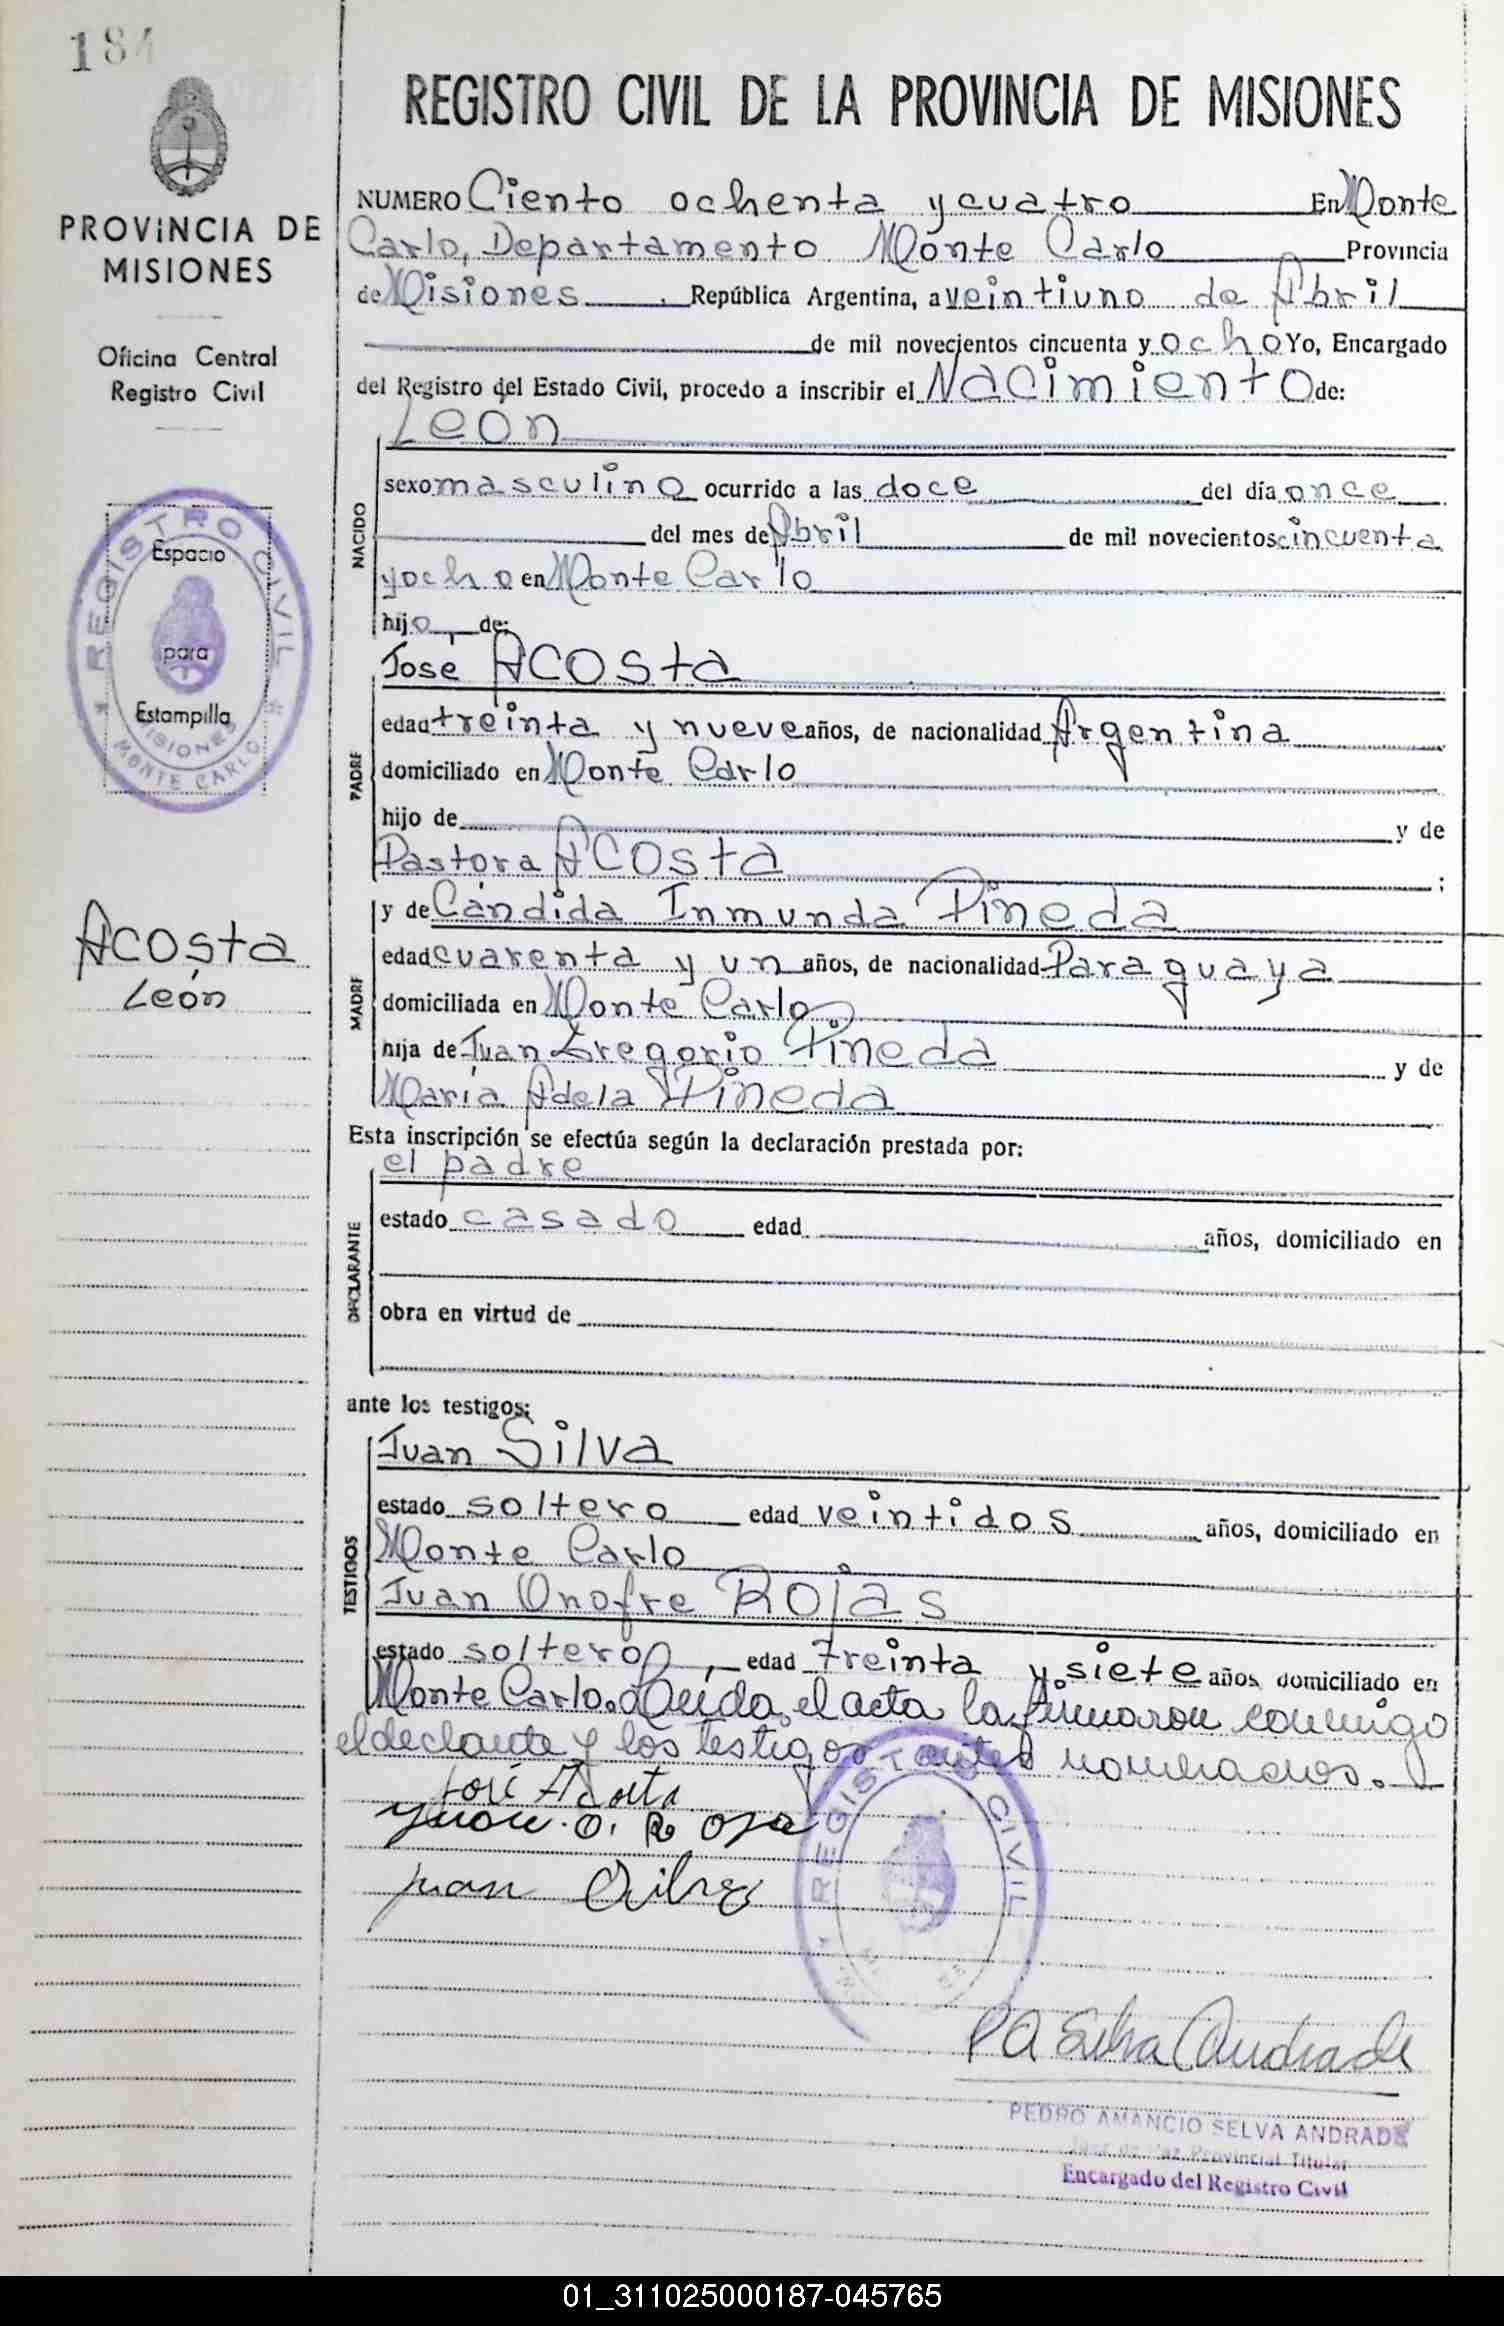 184
PROVINCIA DE
MISIONES
Oficina Central
Registro Civil
REGISTRO CIVIL
Espacio
para
Estampilla
MISIONES
MONTE CARLO
Acosta
León
REGISTRO CIVIL DE LA PROVINCIA DE MISIONES
NUMERO Ciento ochenta y cuatro En Monte
Carlo, Departamento Monte Carlo Provincia
de Misiones República Argentina, a veintiuno de Abril
de mil novecientos cincuenta y ocho Yo, Encargado
del Registro del Estado Civil, procedo a inscribir el Nacimiento de:
NACIDO
León
sexo masculino ocurrido a las doce del día once
del mes de Abril de mil novecientos cincuenta
y ocho en Monte Carlo
hijo de:
PADRE
José Acosta
edad treinta y nueve años, de nacionalidad Argentina
domiciliado en Monte Carlo
hijo de y de
Pastora Acosta ;
MADRE
y de Cándida Inmunda Pineda
edad cuarenta y un años, de nacionalidad Paraguaya
domiciliada en Monte Carlo
hija de Juan Gregorio Pineda y de
María Adela Pineda
Esta inscripción se efectúa según la declaración prestada por:
DECLARANTE
el padre
estado casado edad años, domiciliado en
obra en virtud de
ante los testigos:
TESTIGOS
Juan Silva
estado soltero edad veintidos años, domiciliado en
Monte Carlo
Juan Onofre Rojas
estado soltero, edad treinta y siete años domiciliado en
Monte Carlo. Leída el acta la firmaron conmigo
el declante y los testigos antes nombrados.
José Acosta
Juan O. Ro
Juan
REGISTRO CIVIL
P A Selva Andrade
PEDRO AMANCIO SELVA ANDRADE
Juez de Paz Provincial Titular
Encargado del Registro Civil
01_311025000187-045765